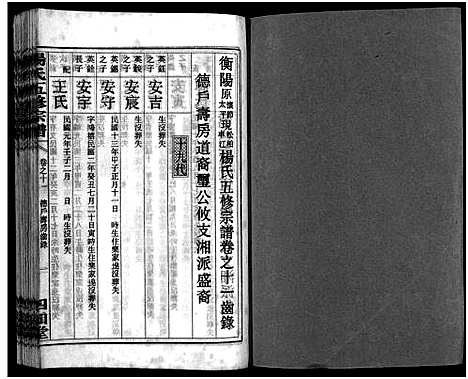 衡陽原懷節太平現松柏車江楊氏五修宗譜卷之十一齒錄
德戶壽房道裔璽公攸支湘派盛裔
十九代
英鈺之子
安吉
生沒葬失
英鈺之子
安宸
生沒葬失
英錫之子
安守
民國十三年甲子正月十一日 時生住樂家塢沒葬失
英銓長子
安宇
字陽禧民國二年癸丑七月二十日寅時生住樂家塢沒葬失
配
王氏
民國元年壬子二月 日 時生沒葬失
楊氏五修宗譜
卷之十一 德戶壽房齒錄
四知堂